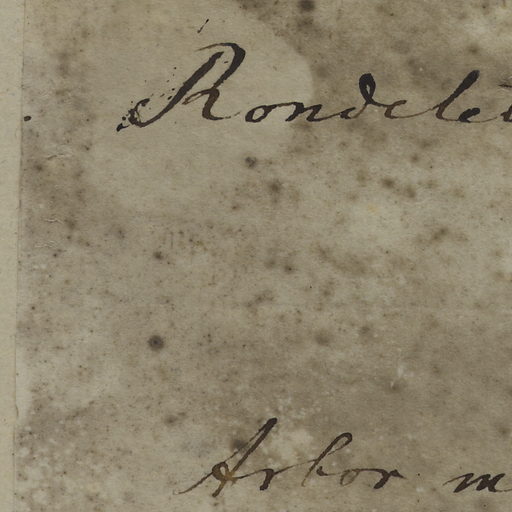 Rondelet
Arbor m